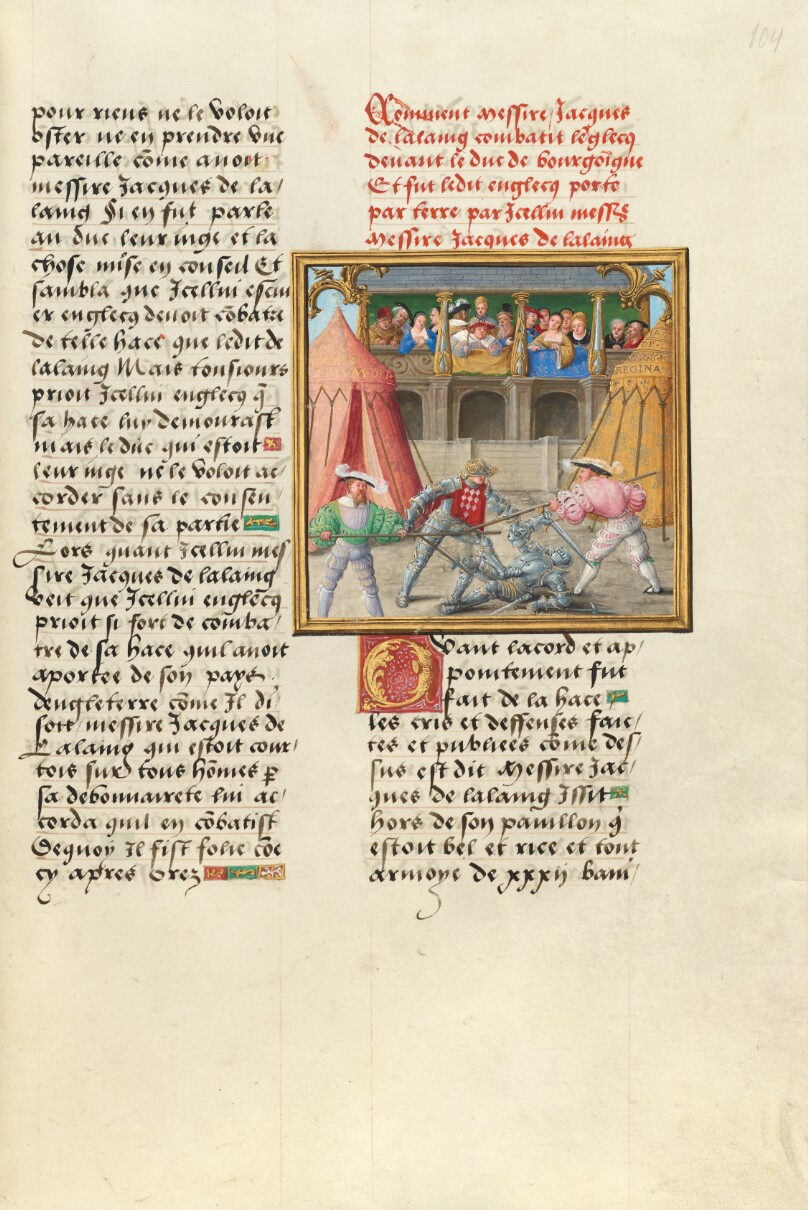 104
pour riens ne le voloit
oster ne en prendre une
pareille cōme avoit
messire Jacques de la/
laing Si en fut parle
au duc leur iuge et la
chose mise en conseil Et
sambla que Jcellui escui
er englecq devoit cōbatre
de telle hace que ledit de
lalaing Mais tousiours
prioit Jcellui englecq q̄
sa hace luy demourast
mais le duc qui estoit
leur iuge ne le voloit ac/
corder sans le consen
tement de sa partie
Lors quant Jcellui mes/
sire Jacques de lalaing
veit que Jcellui englecq
prioit si fort de comba/
tre de sa hace quil avoit
aportee de son pays
dengleterre cōme Il di/
soit messire Jacques de
Lalaing qui estoit cour/
tois sur tous hōmes p̄
sa debonnairete lui ac/
corda quil en cōbatist
Dequoy Il fist folie cōe
cy apres orez
Comment Messire Jacques
de lalaing combatit lēglecq
devant le duc de bourgoīgne
Et fut ledit englecq porte
par terre par Jcellui
Messire Jacques de lalaing
REGINA
Dvant lacord et ap/
pointement fut
fait de la hace
les cris et deffenses faic/
tes et publiees cōme des/
sus est dit Messire Jac/
ques de lalaing Issit
hors de son pavillon q̄
estoit bel et rice et tout
armoye de xxxij bani/